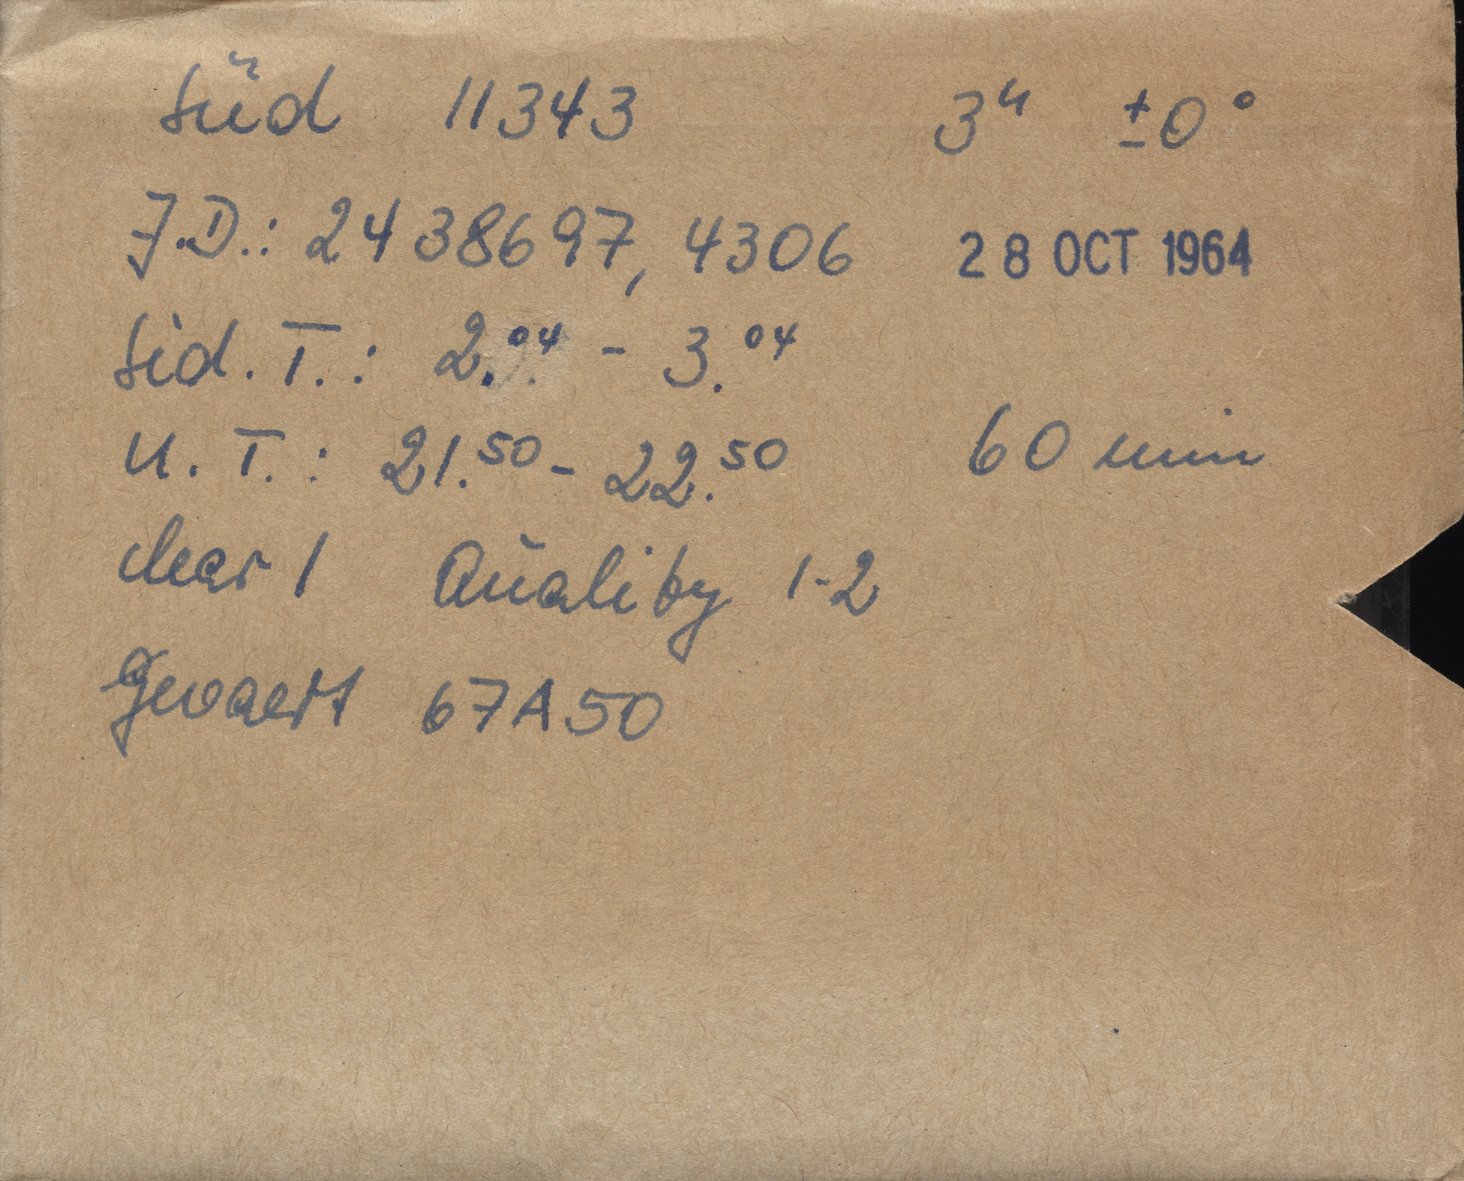 Süd 11343 3ʰ ±0°
J.D.: 2438697,4306 28 OCT 1964
Sid. T.: 2.⁰⁴ - 3.⁰⁴
U. T.: 21.⁵⁰ - 22.⁵⁰ 60 min
clear 1 Quality 1-2
Gevaert 67A50